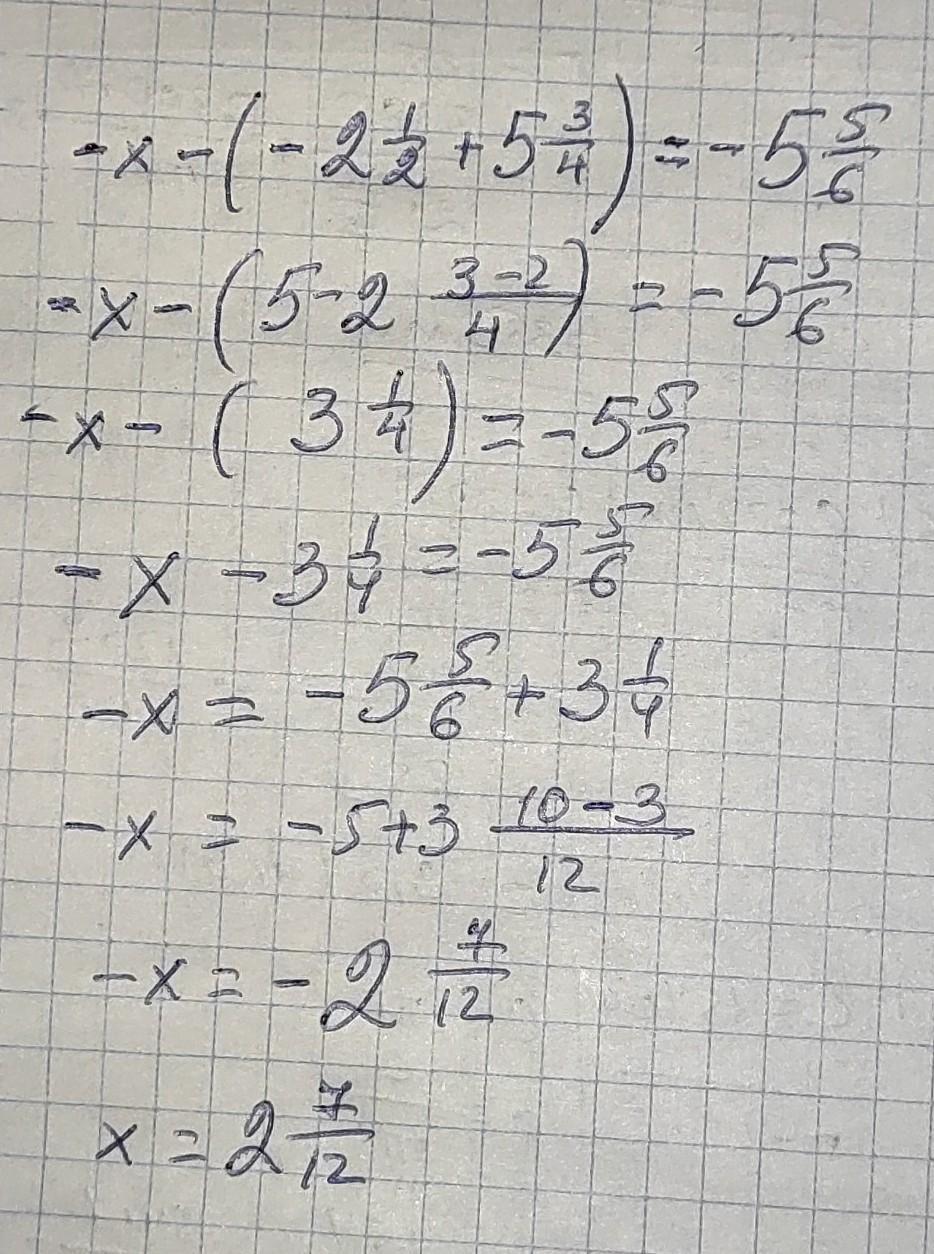 -x-(-2 1/2+5 3/4)=-5 5/6
-x-(5-2 (3-2)/4)=-5 5/6
-x-(3 1/4)=-5 5/6
-x-3 1/4=-5 5/6
-x=-5 5/6+3 1/4
-x=-5+3 (10-3)/12
-x=-2 7/12
x=2 7/12